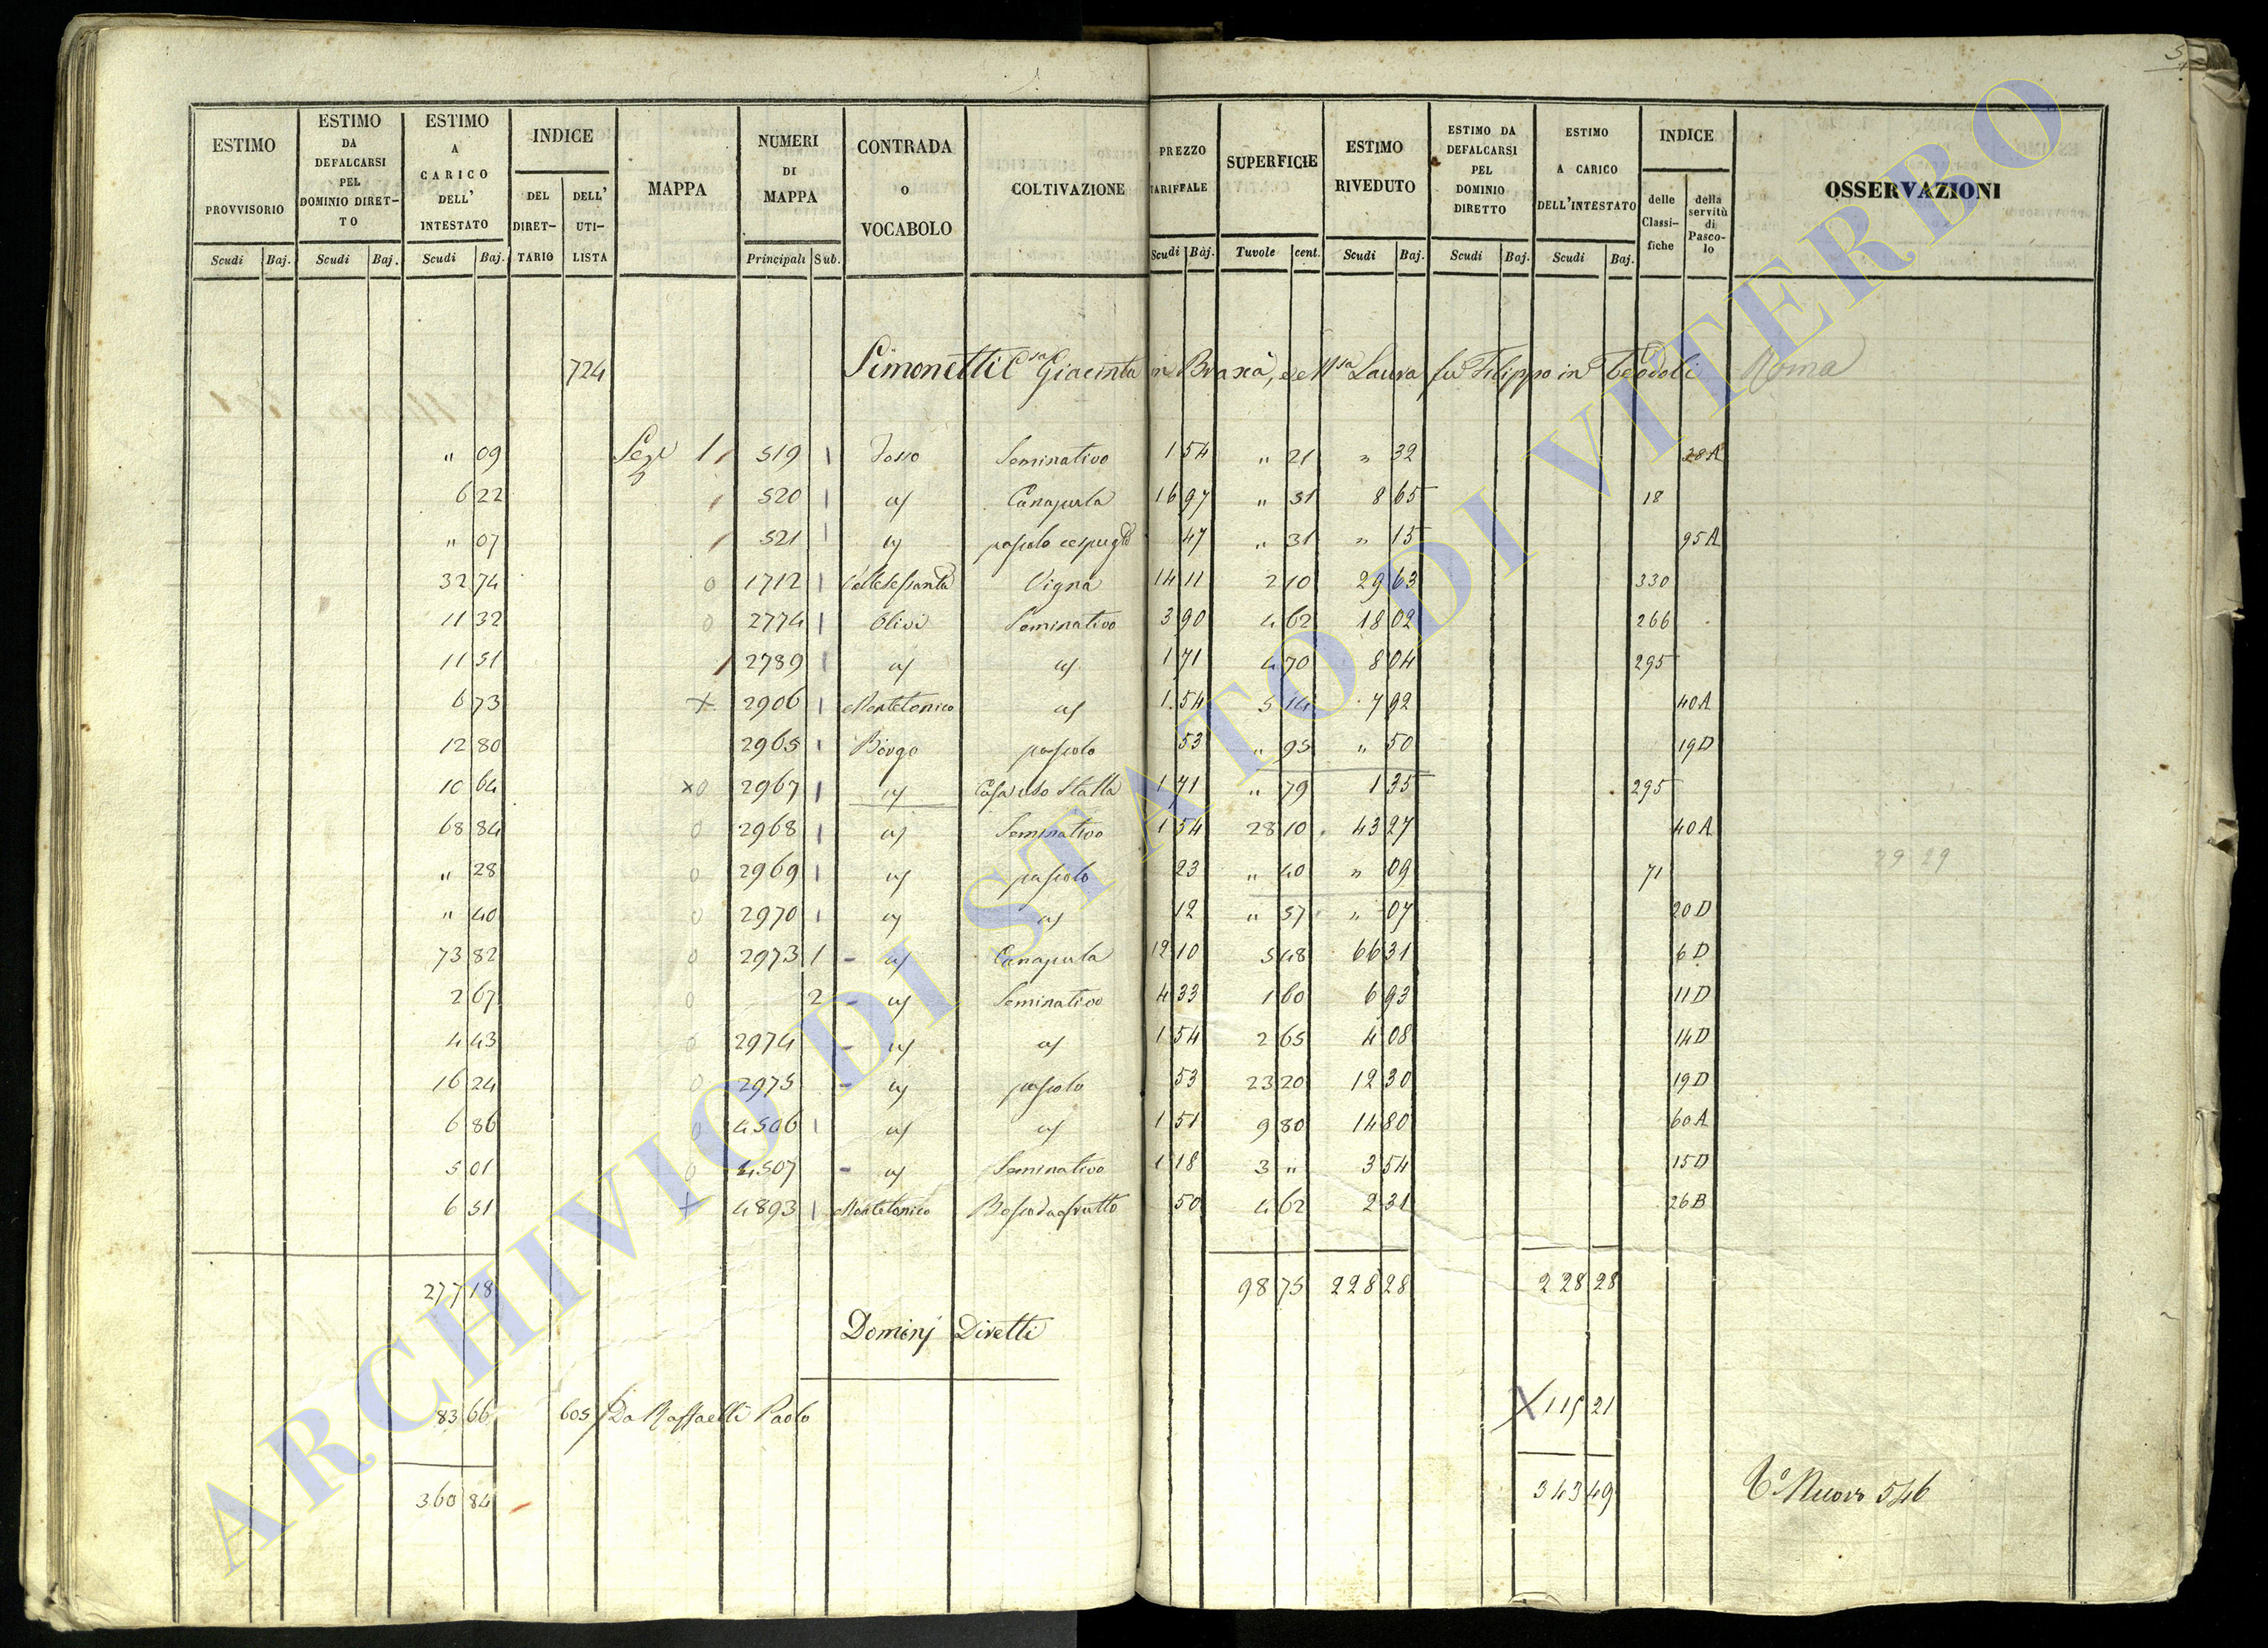 ESTIMO PROVVISORIO Scudi Baj. ESTIMO DA DEFALCARSI PEL DOMINIO DIRET-TO Scudi Baj. ESTIMO A CARICO DELL' INTESTATO Scudi Baj. INDICE DEL DIRET-TARIO DELL' UTI-LISTA MAPPA NUMERI DI MAPPA Principali Sub. CONTRADA O VOCABOLO COLTIVAZIONE PREZZO TARIFFALE Scudi Baj. SUPERFICIE Tavole cent. ESTIMO RIVEDUTO Scudi Baj. ESTIMO DA DEFALCARSI PEL DOMINIO DIRETTO Scudi Baj. ESTIMO A CARICO DELL'INTESTATO Scudi Baj. INDICE delle Classi-fiche della servitù di Pasco-lo OSSERVAZIONI
724 Simonetti C.sa Giacinta in Brascà, e M.sa Laura fu Filippo in Teodoli Roma
" 09 1 519 Fosso Seminativo 1 54 " 21 " 32 38A
6 22 520 id Canapula 16 97 " 51 8 65 18
" 07 521 id pascolo cespugl.o 47 " 31 " 15 95A
32 74 0 1712 Vigna 14 11 2 10 29 63 330
11 32 0 2774 Olivi Seminativo 3 90 4 62 18 02 266
11 51 2789 id id 1 71 4 70 8 04 295
6 73 X 2906 Montetonico id 1 54 5 14 7 92 40A
12 80 2965 Borgo pascolo 53 " 95 " 50 19D
10 64 X0 2967 id Casa uso Stalla 1 71 " 79 1 35 295
68 84 0 2968 id Seminativo 1 54 28 10 43 27 40A
" 28 0 2969 id pascolo 23 " 40 " 09 71 29 29
" 40 0 2970 id id 12 " 57 " 07 20D
73 82 0 2973 1 - id Canapula 12 10 5 48 66 31 6D
2 67 0 2 - id Seminativo 4 33 1 60 6 93 11D
4 43 0 2974 - id id 1 54 2 65 4 08 14D
16 24 0 2975 - id pascolo 53 23 20 12 30 19D
6 86 0 4506 id id 1 51 9 80 14 80 60A
5 01 0 4507 - id Seminativo 1 18 3 " 3 54 15D
6 51 X 4893 Montetonico Bosco da frutto 50 4 62 2 31 26B
277 18 98 75 228 28 228 28
Dominj Diretti
83 66 605 Da Raffaelli Paolo X 115 21
360 84 343 49 T.o Nuovo 546
ARCHIVIO DI STATO DI VITERBO